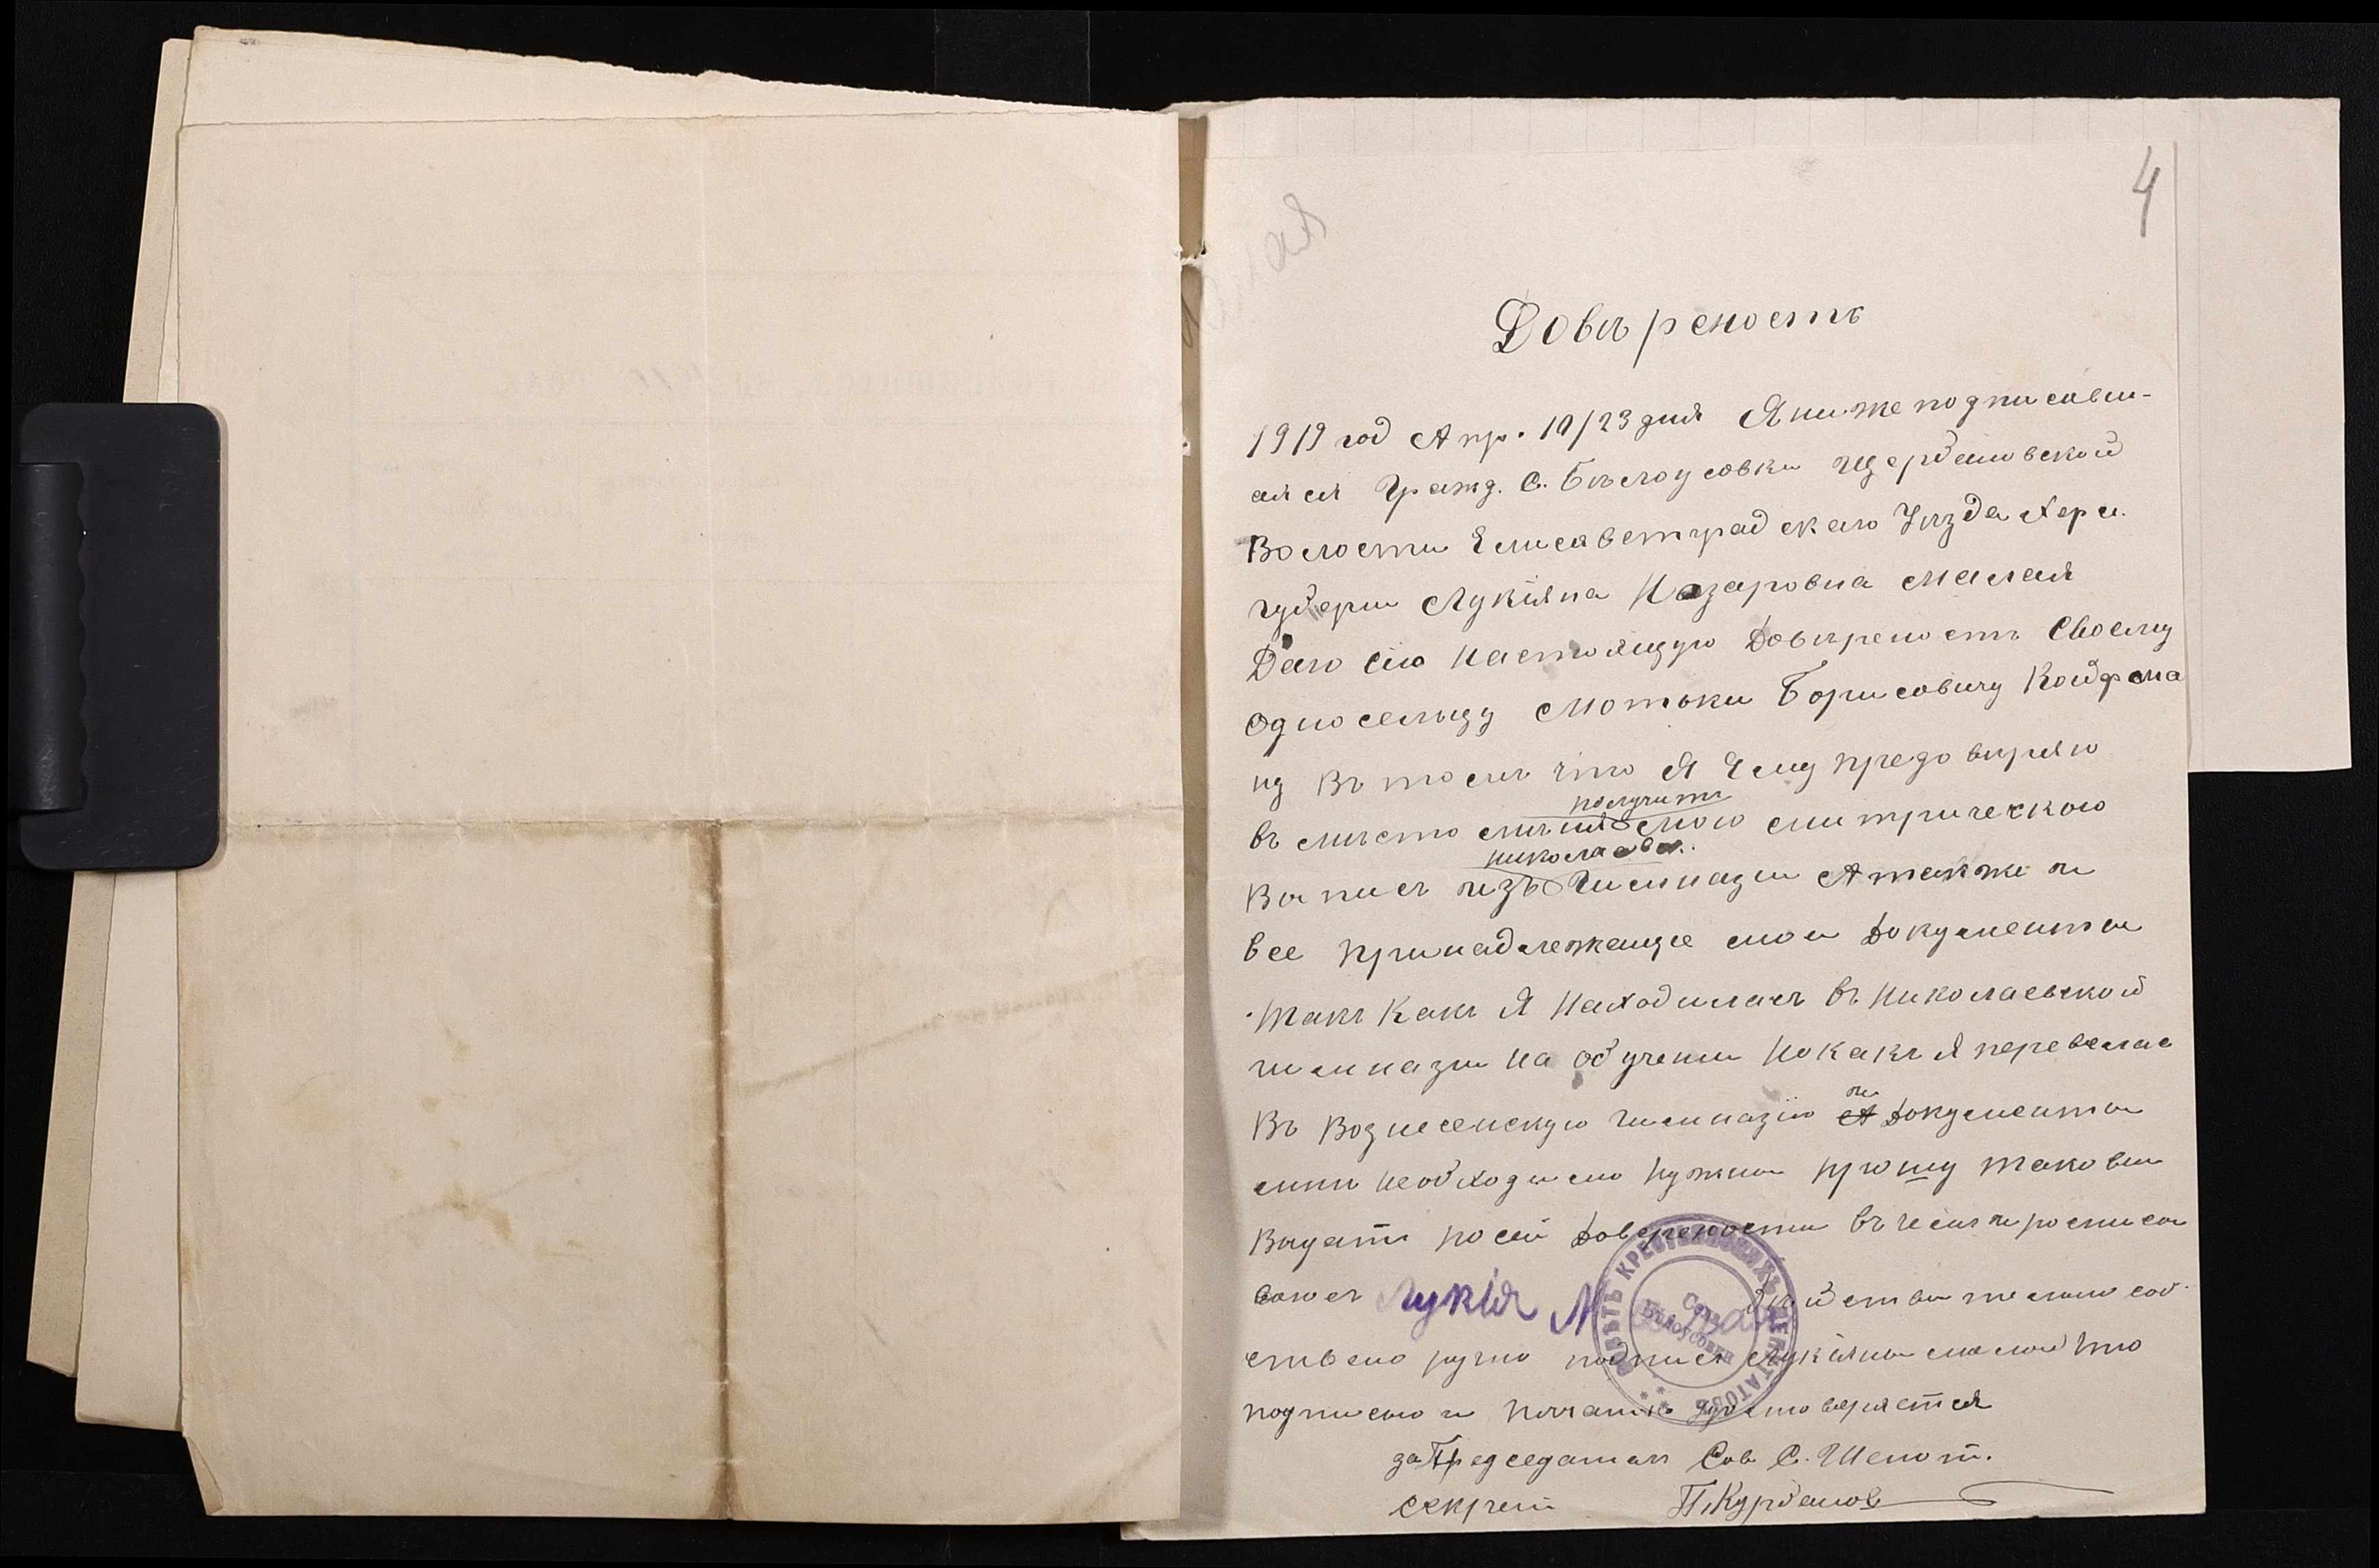 4
Довѣреность
1919 год Апр. 10/23 дня Я ниже подписавш-
аяся Гражд. С. Бѣлоусовки Щербановской
Волости Елисаветградскаго Уѣзда Херс.
губерни Лукіяна Назаровна Малая
Даю сію настоящую Довѣреность Своему
Односельцу Мотьки Борисовичу Койфма
ну Въ томъ что Я Ему предовѣряю
получить
въ мѣсто мѣня мою митрическою
николаевс.
Выпись изъ Гимназии А также и
все принадлежащие мои Документы
Такъ Какъ Я Находилась въ Николаевской
гимназии на обучении Но какъ Я перевелас
Въ Вознесенскую гимназию и Документы
мнѣ Необходимо Нужны прошу таковыи
Выдать по сей Довереюности въ чемъ и росписы
ваюсь Лукія Малая Дѣйствительно соб-
ственоручно подпись Лукіяны малой Что
подписью и печатью удостоверяется
СОВѢТЪ КРЕСТЬЯНСКИХЪ ДЕПУТАТОВЪ
Села
Белоусовки
за Председатель Сов. С. Шепот.
секрет П. Курбанов